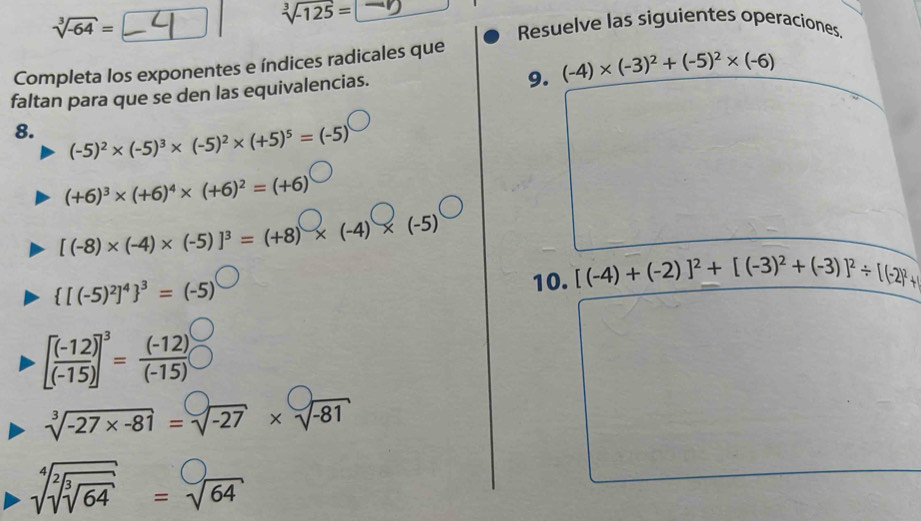 ∛-64 = -4
∛-125 = -5
Completa los exponentes e índices radicales que
faltan para que se den las equivalencias.
8.
(-5)² × (-5)³ × (-5)² × (+5)⁵ = (-5)
(+6)³ × (+6)⁴ × (+6)² = (+6)
[ (-8) × (-4) × (-5) ]³ = (+8) × (-4) × (-5)
{ [ (-5)²]⁴ }³ = (-5)
[(-12)/(-15)]³ = (-12)/(-15)
∛-27 × -81 = √-27 × √-81
⁴√²√³√64 = √64
Resuelve las siguientes operaciones.
9. (-4) × (-3)² + (-5)² × (-6)
10. [ (-4) + (-2) ]² + [ (-3)² + (-3) ]² ÷ [ (-2)² +